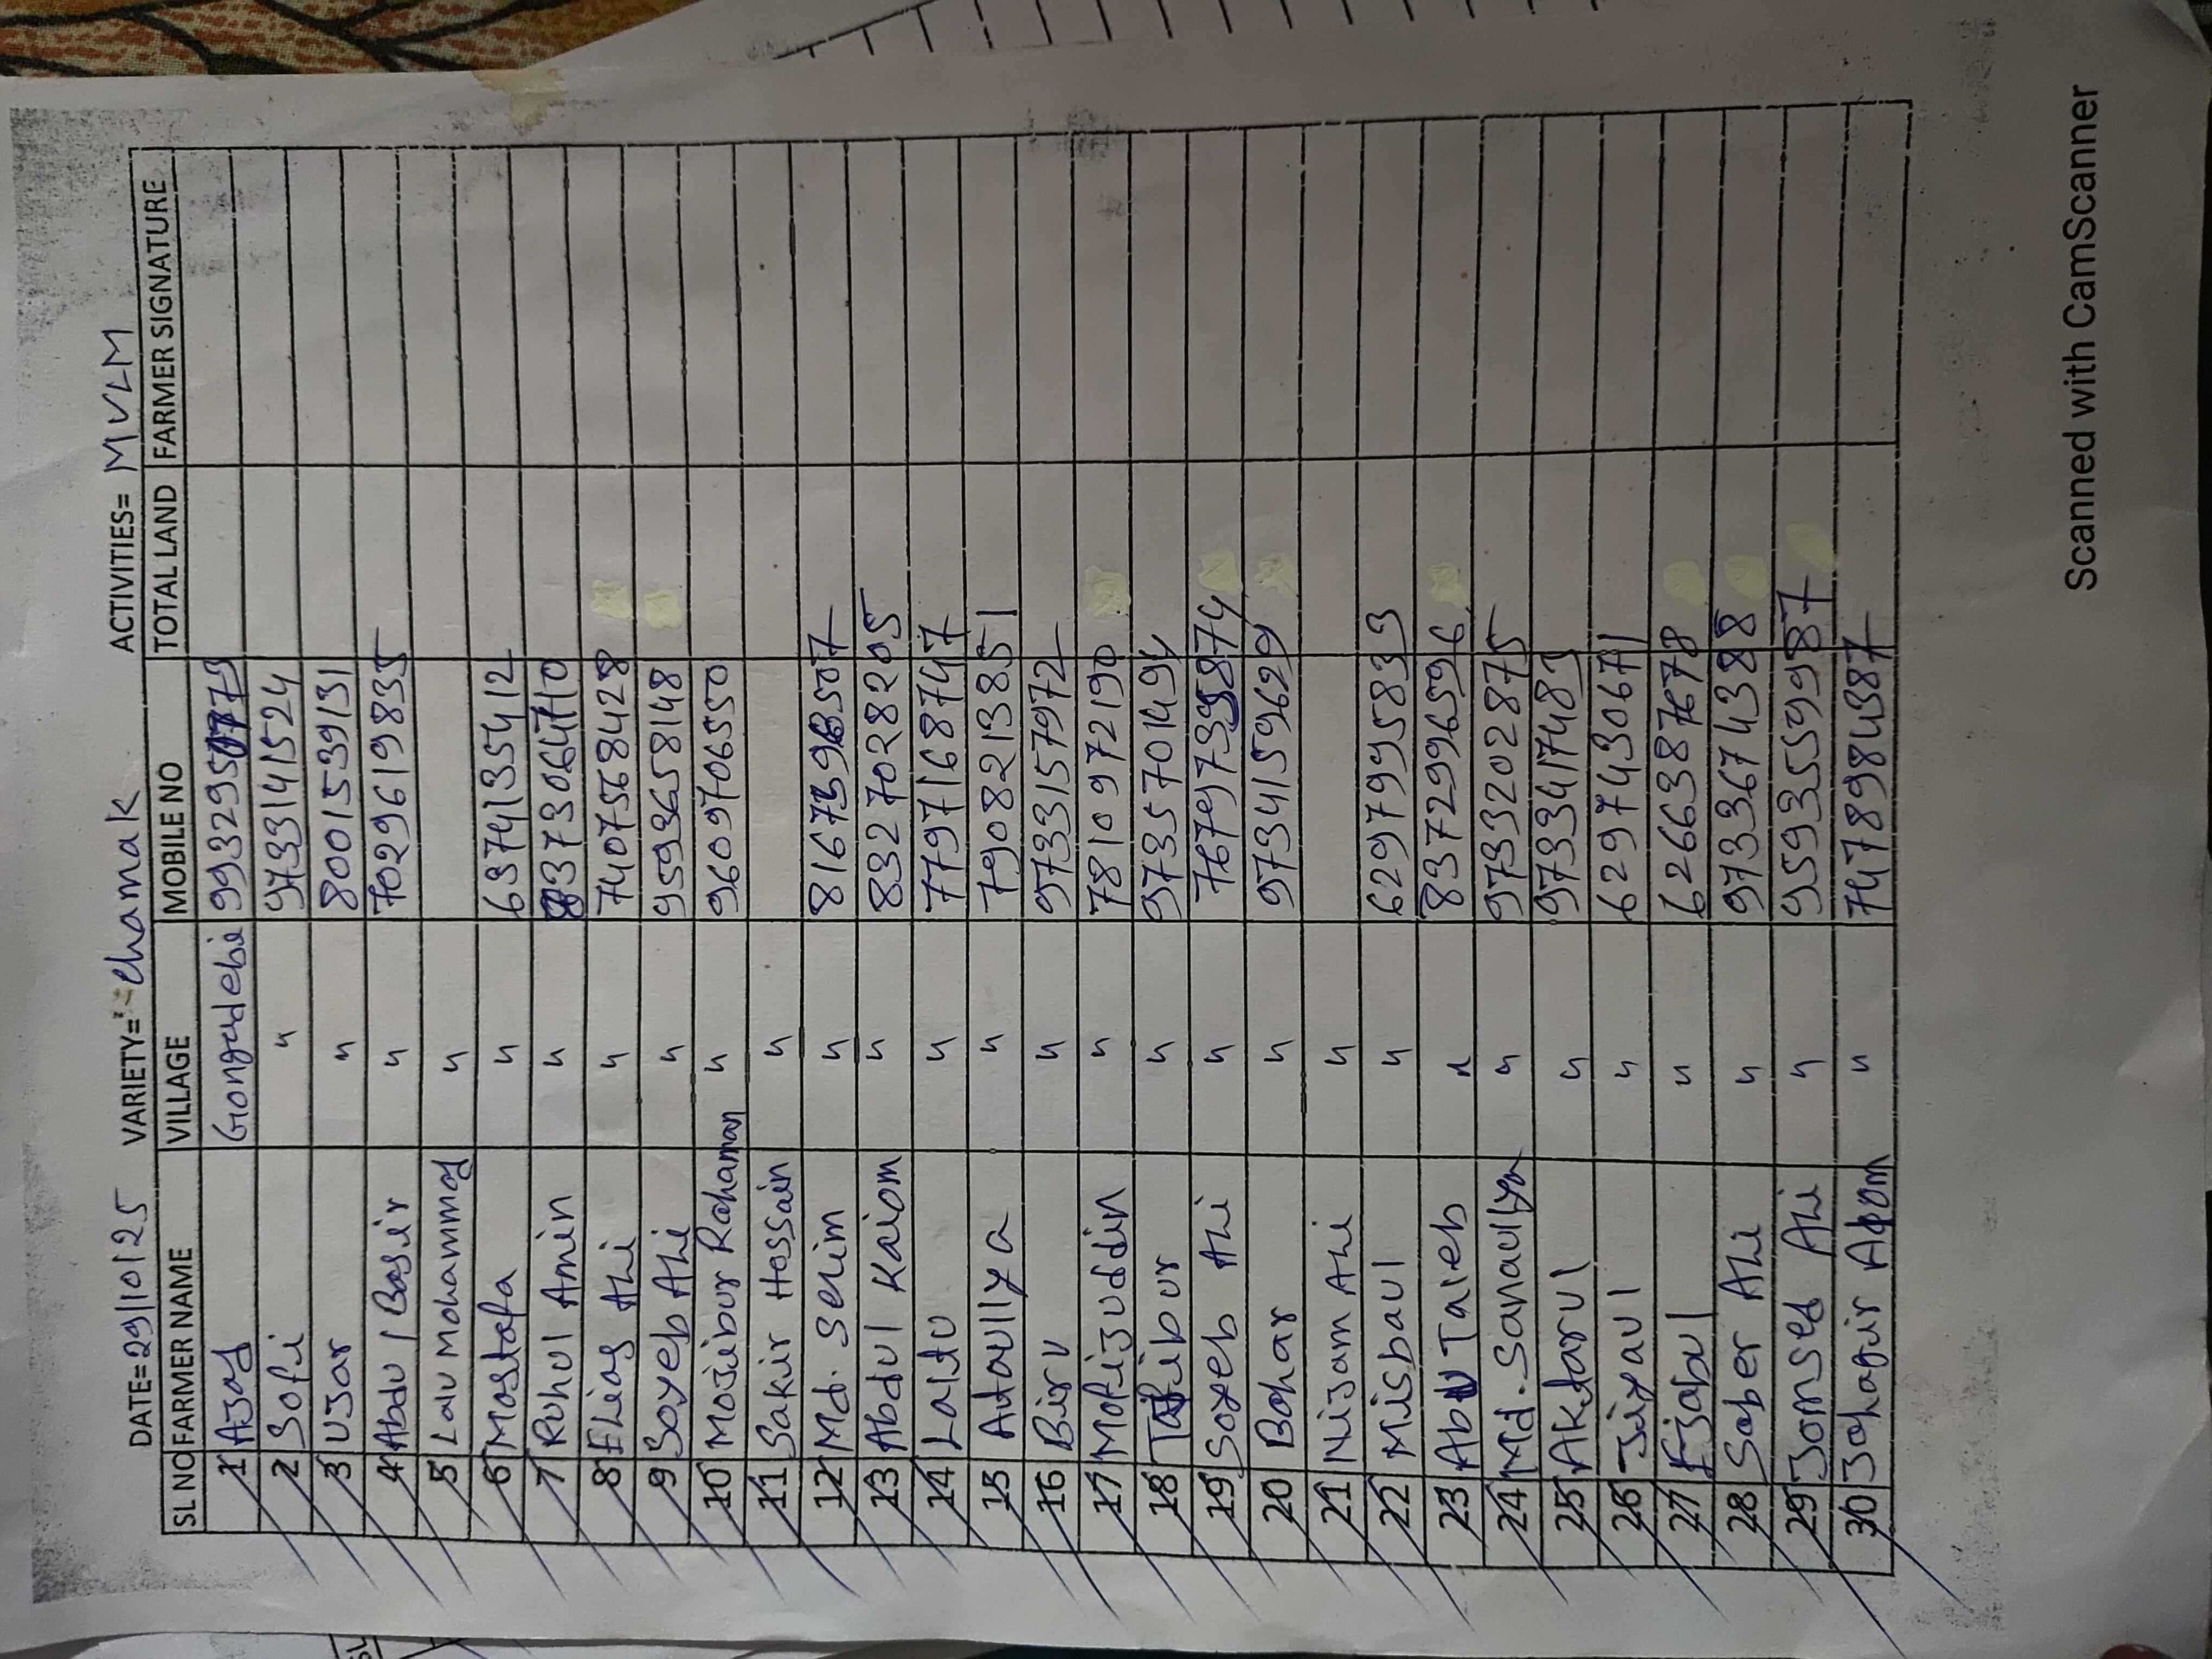 DATE= 29/10/25 VARIETY= Chamak ACTIVITIES= MVLM
SL NO FARMER NAME VILLAGE MOBILE NO TOTAL LAND FARMER SIGNATURE
1 Azad Gongaldebi
2 Sofi " 9733141524
3 UJar " 8001539131
4 Abdul Basir " 7029619835
5 Lalu Mohammad "
6 Mostafa " 6374135412
7 Ruhul Amin "
8 Elias Ali " 7407568428
9 Soyeb Ali " 9593658148
10 Mojibur Rahaman " 9609706550
11 Sakir Hossain "
12 Md. Selim " 8167396507
13 Abdul Kaiom " 8327028205
14 Laltu " 7797168747
15 Ataullya " 7908213851
16 Biru " 9733157972
17 Mofijuddin " 7810972190
18 "
19 Soyeb Ali "
20 Bahar " 9734159629
21 Nijam Ali "
22 Misbaul " 6297995833
23 Abu Taleb " 8372996596
24 Md. Sanaullya 9733202875
25 Aktarul " 9733417483
26 Jiyaul " 6297430671
27 "
28 Saber Ali " 9733674388
29 Jomsed Ali " 9593559987
30 " 7478984387
Scanned with CamScanner